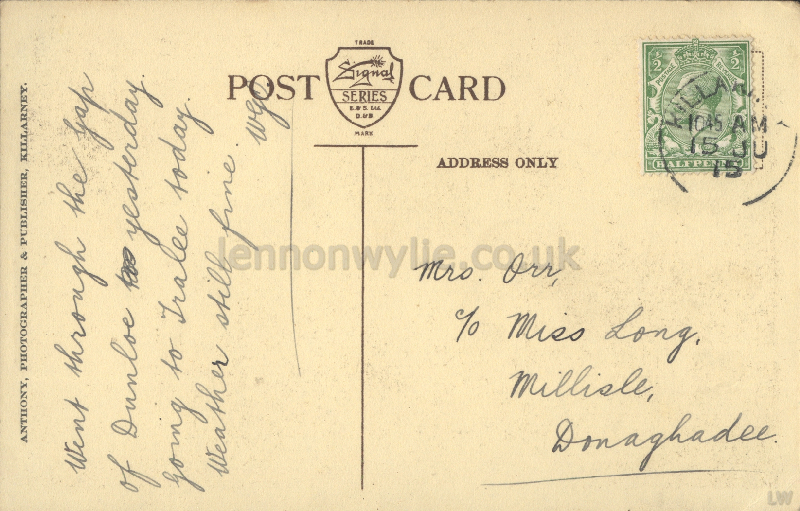 ANTHONY, PHOTOGRAPHER & PUBLISHER, KILLARNEY.
Went through the gap
of Dunloe yesterday.
Going to Tralee today.
Weather still fine. WG
POST CARD
TRADE
Signal
SERIES
E. & S. Ltd.
D. & B
MARK
ADDRESS ONLY
½ ½
HALFPENNY
KILLAR
10 45 AM
15 JU
15
Mrs. Orr,
c/o Miss Long,
Millisle,
Donaghadee.
lennonwylie.co.uk
LW